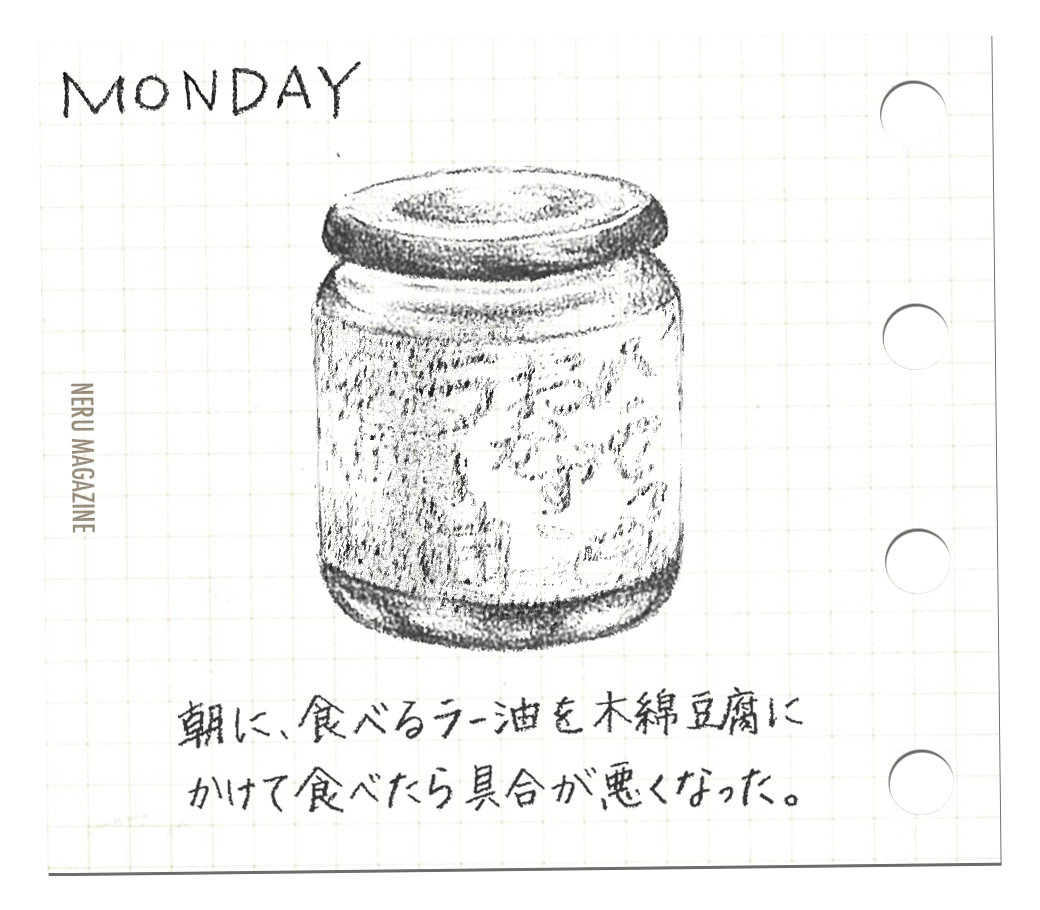 MONDAY
NERU MAGAZINE
朝に、食べるラー油を木綿豆腐に
かけて食べたら具合が悪くなった。